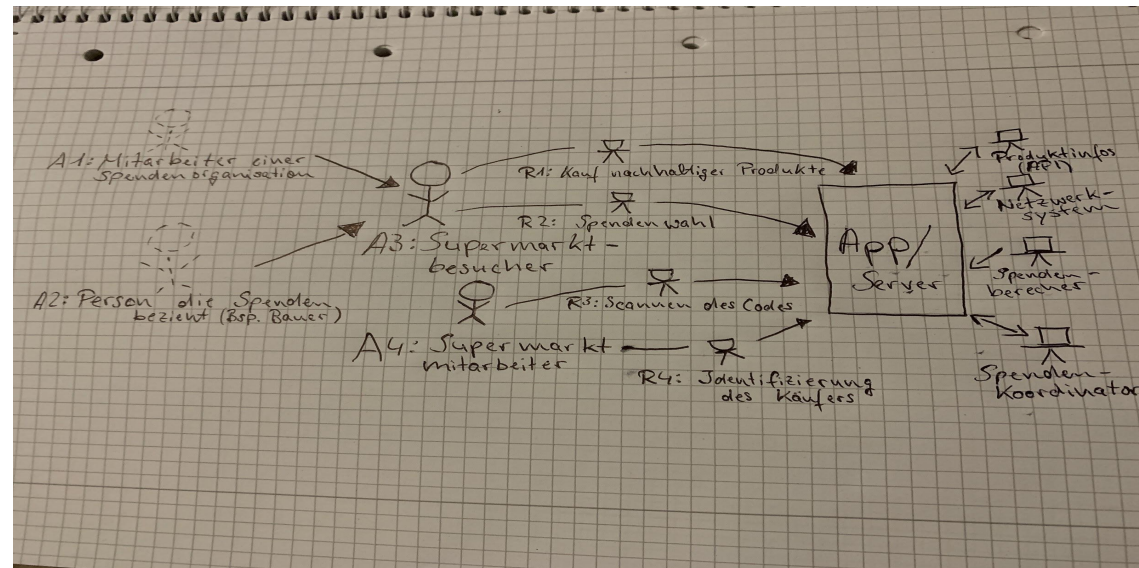 A1: Mitarbeiter einer
Spendenorganisation
A2: Person die Spenden
bezieht (Bsp. Bauer)
A3: Supermarkt-
besucher
A4: Supermarkt
mitarbeiter
R1: Kauf nachhaltiger Produkte
R2: Spendenwahl
R3: Scannen des Codes
R4: Identifizierung
des Käufers
App/
Server
Produktinfos
(API)
Netzwerk-
system
Spenden-
berechner
Spenden-
Koordinator